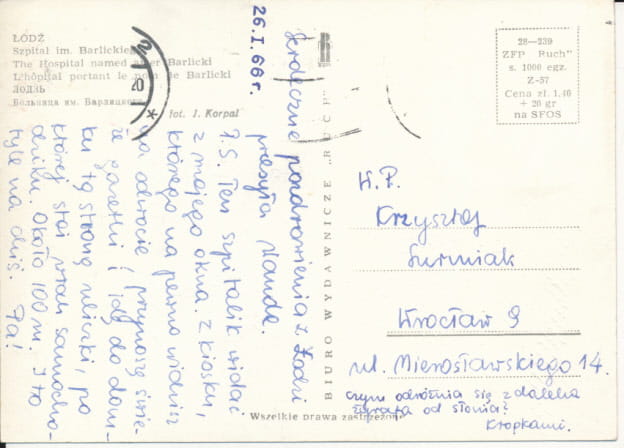 ŁÓDŹ
Szpital im. Barlickiego
The Hospital named after Barlicki
L'hôpital portant le nom de Barlicki
ЛОДЗЬ
Больница им. Барлицкого
fot. J. Korpal
26.I.66r.
Serdeczne pozdrowienia z Łodzi
przesyła Wanda.
P.S. Ten szpitalik widać
z mojego okna. Z kiosku,
którego na pewno widzisz
na odwrocie przynoszę świe-
że gazetki i idę do dom-
ku tą stroną uliczki, po
której stoi wśród samocho-
dziku. Około 100 m. I to
tyle na dziś. Pa!
BIURO WYDAWNICZE „RUCH"
Wszelkie prawa zastrzeżone
28—239
ZFP „Ruch"
s. 1000 egz.
Z-57
Cena zł. 1,40
+ 20 gr
na SFOS
W.P.
Krzysztof
Surmiak
Wrocław 9
ul. Mierosławskiego 14.
czym odróżnia się z daleka
żyrafa od słonia?
Kropkami.
20